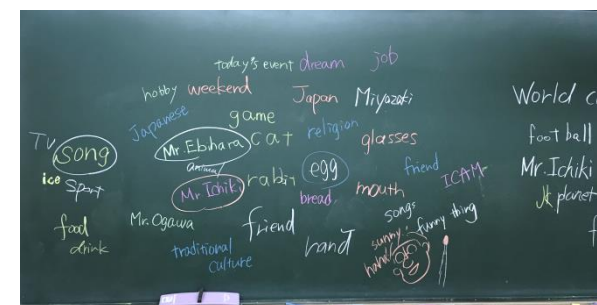 today's event dream job
hobby weekend Japan Miyazaki World c
Japanese game religion glasses foot ball
TV song Mr. Ebihara cat egg friend Mr. Ichiki
ice sport animal Mr. Ichiki rabin bread mouth ICAM planet
food drink Mr. Ogawa friend songs funny thing
traditional culture sunny
hand